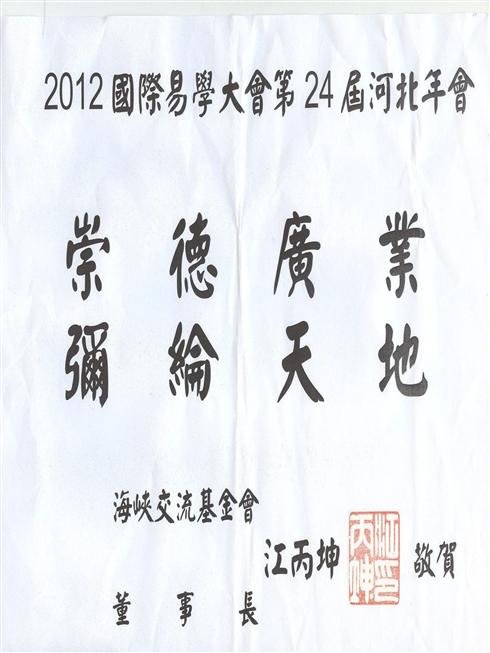 2012國際易學大會第24屆河北年會
崇德廣業
彌綸天地
海峽交流基金會
江丙坤 江丙坤印 敬賀
董事長